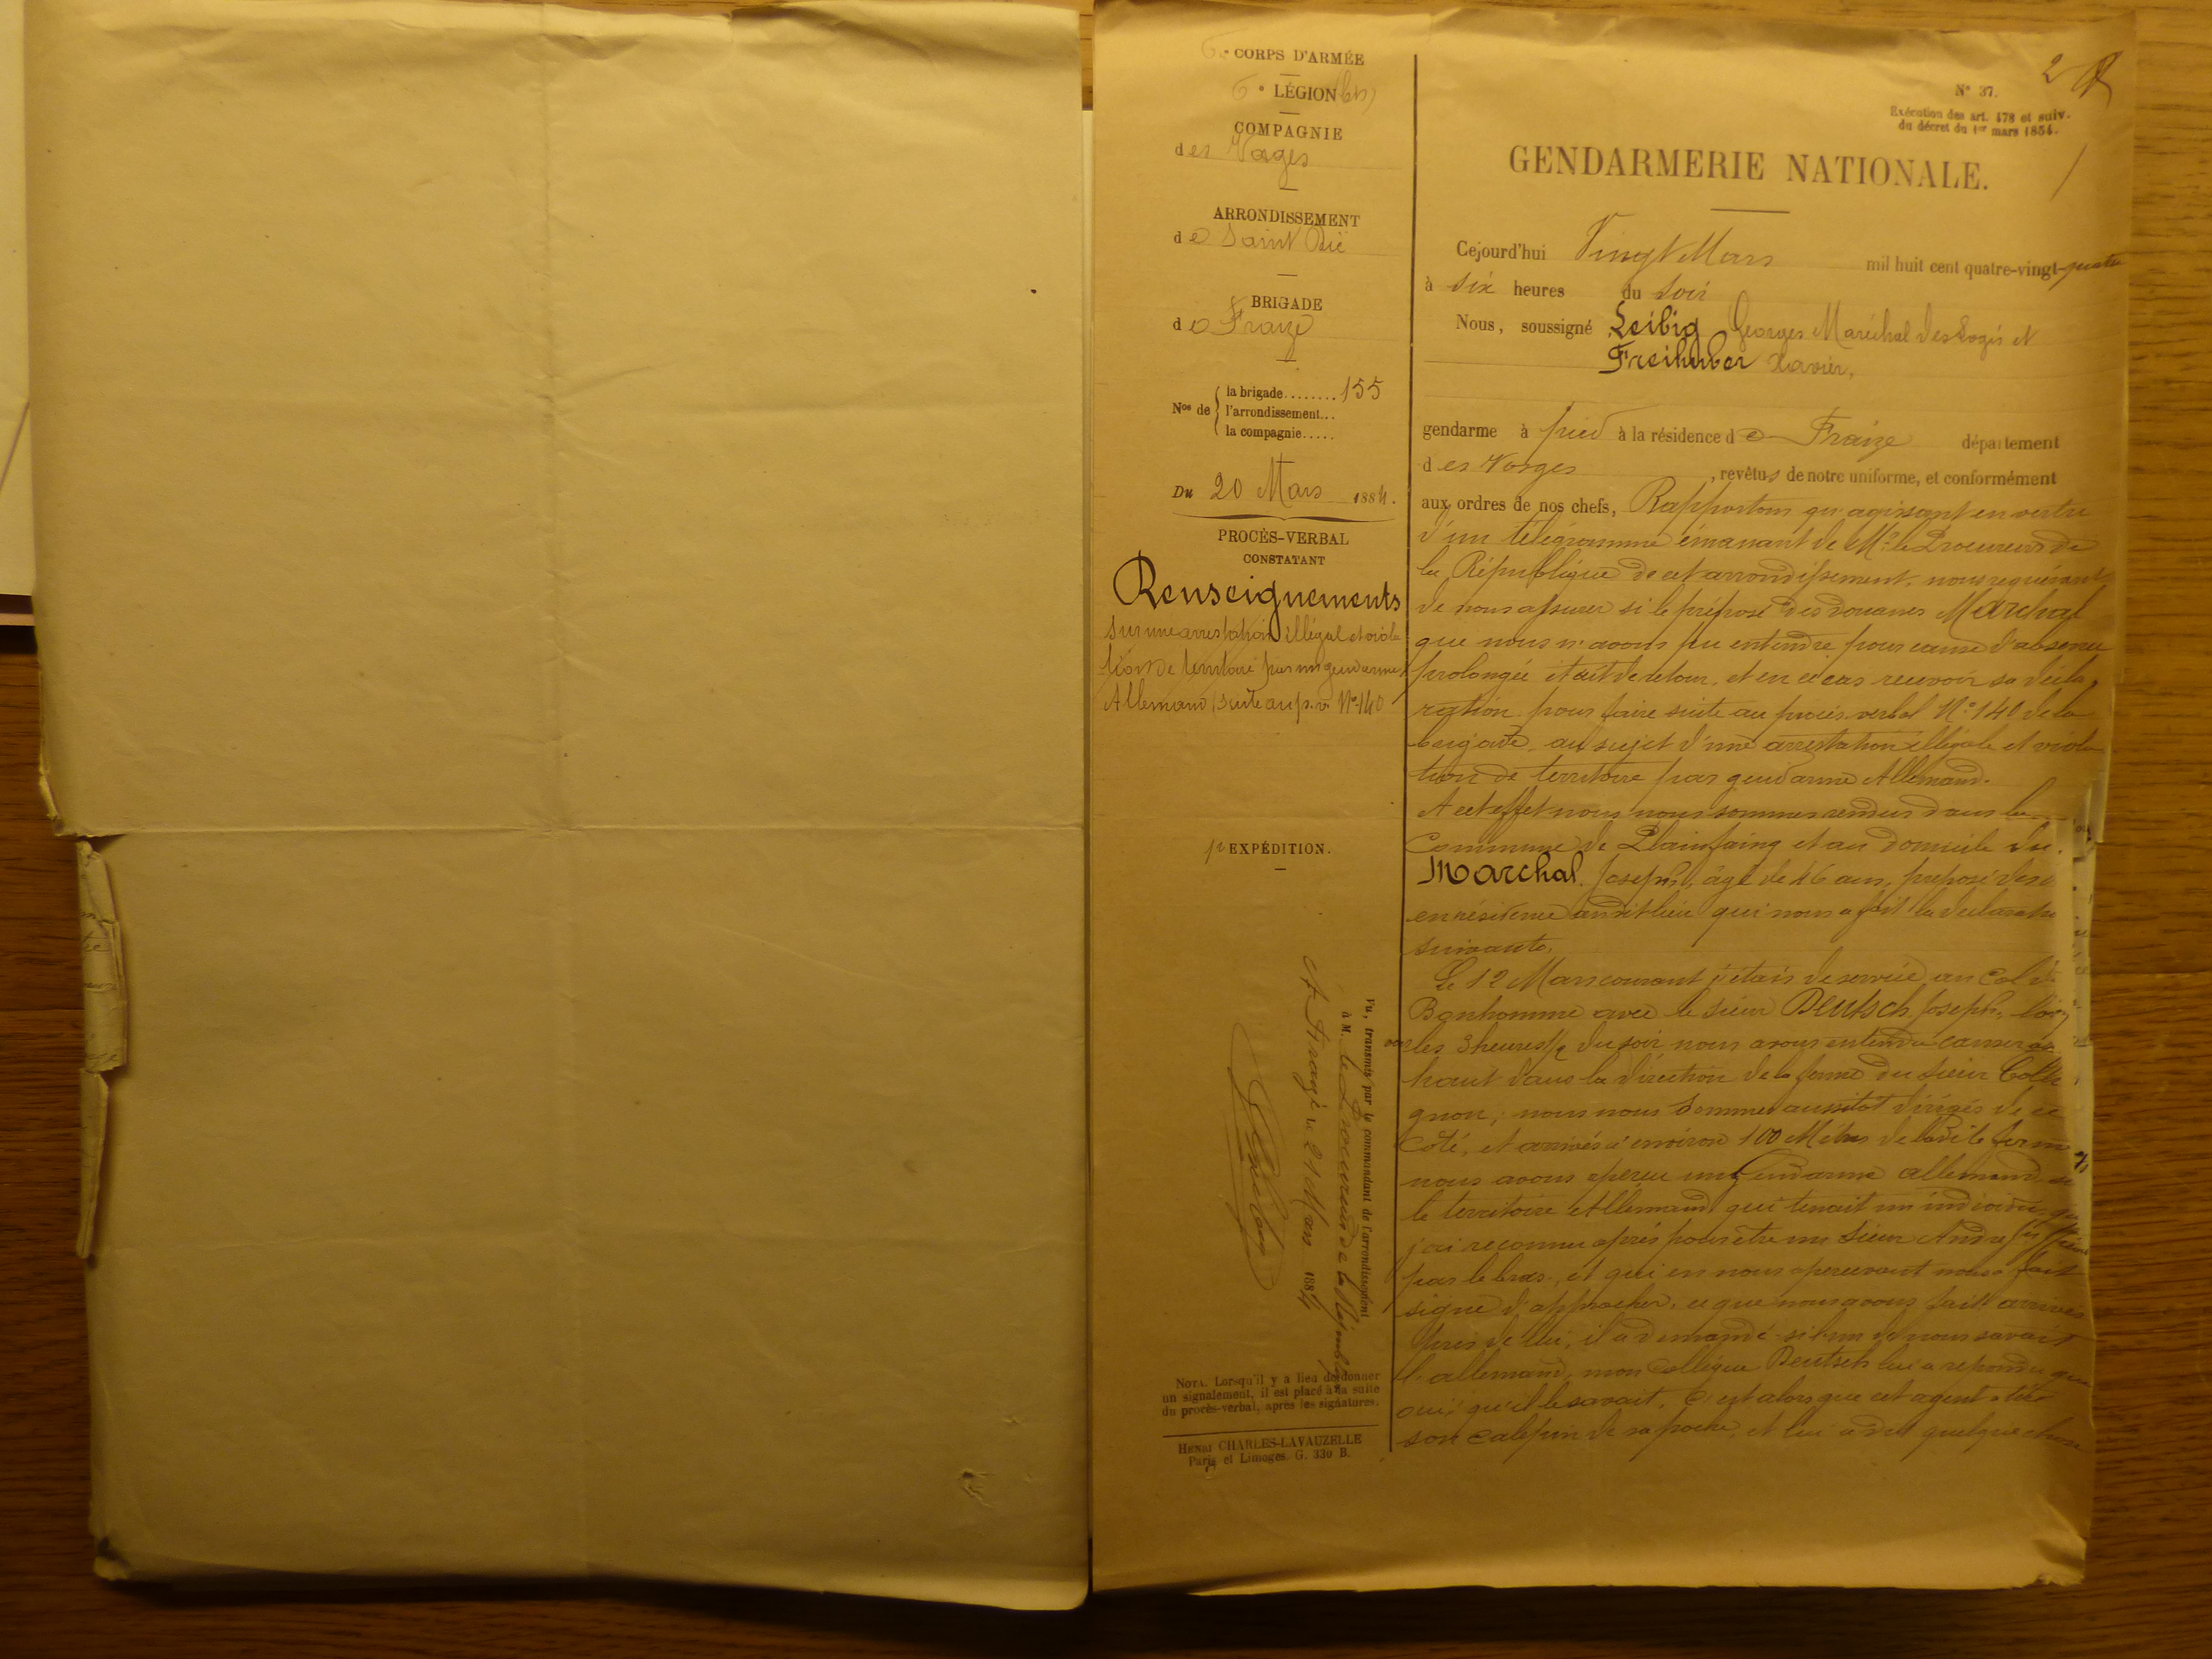 6e CORPS D'ARMÉE
6e LÉGION (bis)
COMPAGNIE
des Vosges
ARRONDISSEMENT
de Saint Dié
BRIGADE
de Fraize
Nos de
la brigade........ 155
l'arrondissement...
la compagnie.....
Du 20 Mars 1884.
PROCÈS-VERBAL
CONSTATANT
Renseignements
sur une arrestation illégal et viola
tion de territoire par un gendarme
Allemand (suite au p.v. N° 140
1re EXPÉDITION.
Vu, transmis par le commandant de l'arrondissement
à M. le Procureur de la République
A le 21 Mars 1884
NOTA. Lorsqu'il y a lieu de donner
un signalement, il est placé à la suite
du procès-verbal, après les signatures.
HENRI CHARLES-LAVAUZELLE
Paris et Limoges. G. 330 B.
2
N° 37.
Exécution des art. 478 et suiv.
du décret du 1er mars 1854.
GENDARMERIE NATIONALE.
Cejourd'hui Vingt Mars mil huit cent quatre-vingt-quatre
à six heures du soir
Nous, soussigné Leibig Georges Maréchal des Logis et
Freihuber Xavier,
gendarme à pied à la résidence de Fraize département
des Vosges, revêtus de notre uniforme, et conformément
aux ordres de nos chefs, Rapportons qu'agissant en vertu
d'un télégramme émanant de Mr le Procureur de
la République de cet arrondissement, nous requérant
de nous assurer si le préposé des douanes Marchal
que nous n'avons pu entendre pour cause d'absence
prolongée était de retour, et en ce cas recevoir sa décla
ration pour faire suite au procès-verbal N° 140 de la
brigade, au sujet d'une arrestation illégale et viola
tion de territoire par gendarme Allemand.
A cet effet nous nous sommes rendus dans la
Commune de Plainfaing et au domicile du
Marchal Joseph, âgé de 46 ans, préposé des
en résidence audit lieu qui nous a fait la déclaration
suivante.
Le 12 Mars courant j'étais de service au Col du
Bonhomme avec le sieur Deutsch Joseph,
vers les 3 heures 1/2 du soir nous avons entendu causer
haut dans la direction de la ferme du sieur Colli
gnon, nous nous sommes aussitôt dirigés de ce
côté, et arrivés à environ 100 Mètres de ladite ferme
nous avons aperçu un Gendarme allemand
le territoire Allemand qui tenait un individu que
j'ai reconnu après pour être un sieur André
par le bras, et qui en nous apercevant nous a fait
signe d'approcher, ce que nous avons fait, arrivés
près de lui, il a demandé si l'un de nous savait
l'allemand, mon collègue Deutsch lui a répondu que
oui, qu'il le savait. C'est alors que cet agent a tiré
son calepin de sa poche, et lui a dit quelque chose